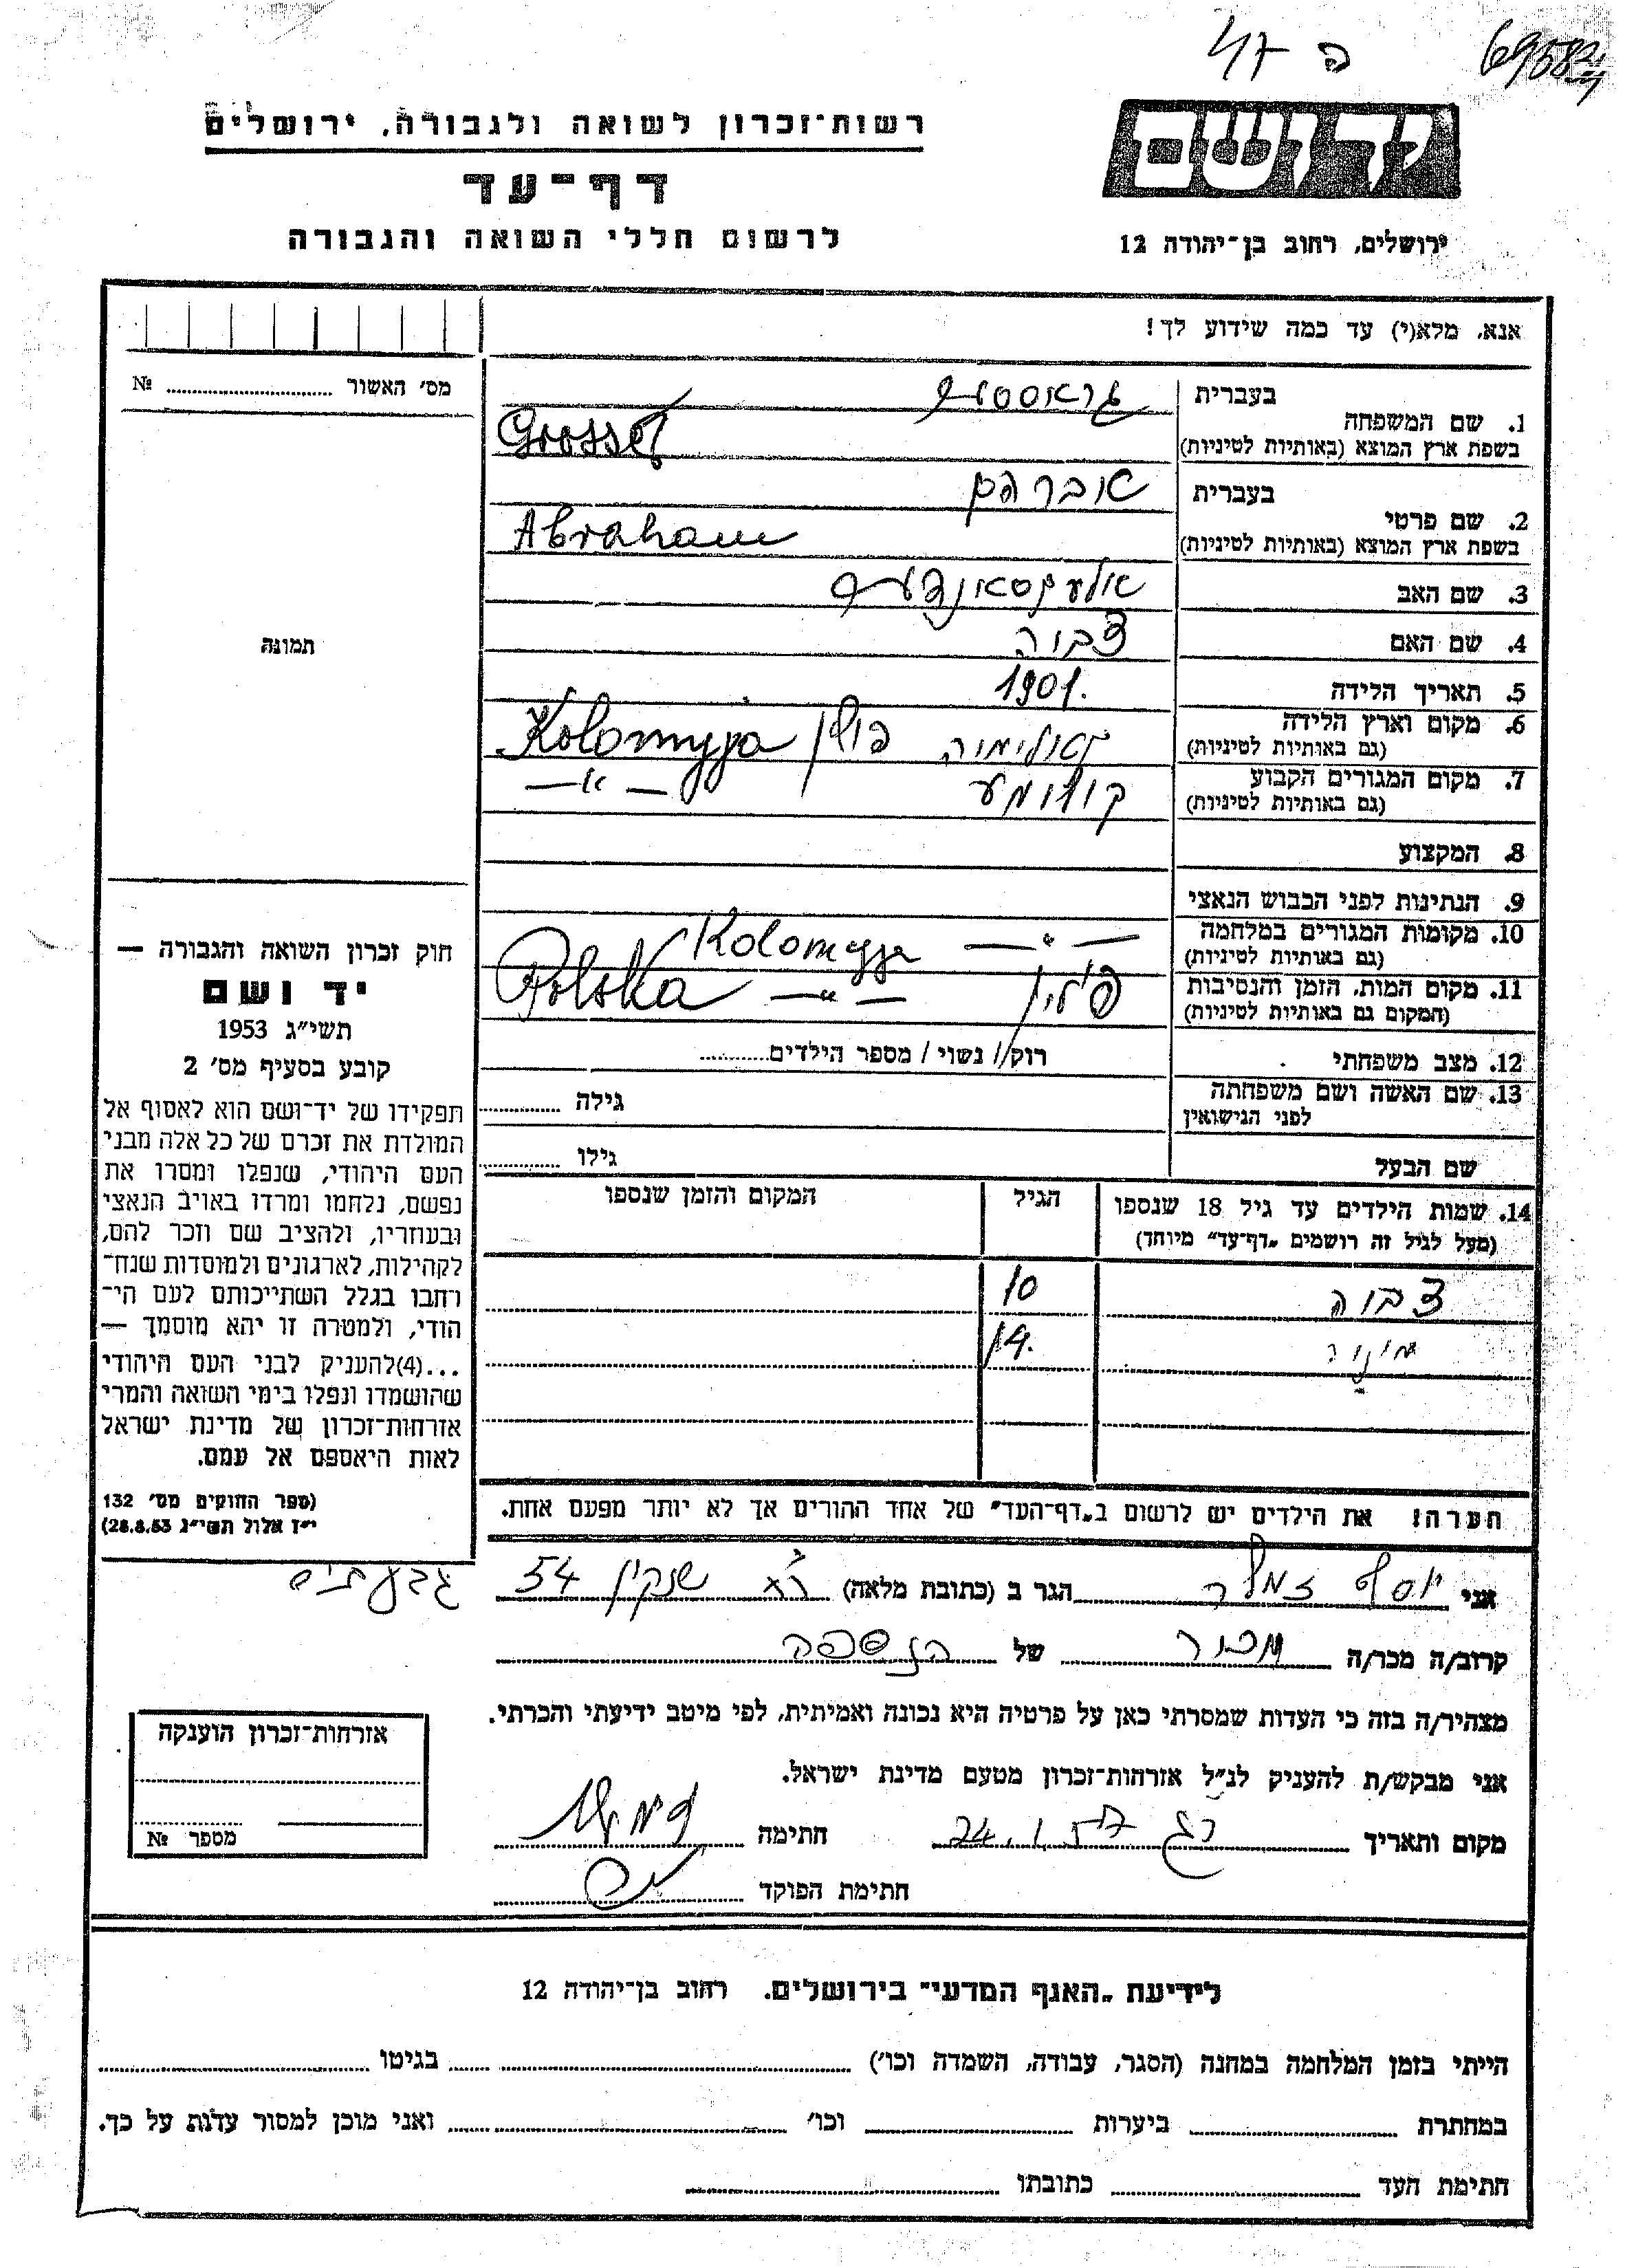 ה
רשות־זכרון לשואה ולגבורה, ירושלים
דף־עד
לרשום חללי השואה והגבורה
יד ושם
ירושלים, רחוב בן־יהודה 12
אנא, מלא(י) עד כמה שידוע לך!
מס׳ האשור № 
תמונה
1. שם המשפחה
בעברית
בשפת ארץ המוצא (באותיות לטיניות)
2. שם פרטי
בעברית אברהם
בשפת ארץ המוצא (באותיות לטיניות) Abraham
3. שם האב
4. שם האם
5. תאריך הלידה 1901.
6. מקום וארץ הלידה
(גם באותיות לטיניות) פולין Kolomyja
7. מקום המגורים הקבוע
(גם באותיות לטיניות) — 〃 —
8. המקצוע
9. הנתינות לפני הכבוש הנאצי
10. מקומות המגורים במלחמה
(גם באותיות לטיניות) — 〃 — Kolomyja
11. מקום המות, הזמן והנסיבות
(המקום גם באותיות לטיניות) פולין — 〃 — Polska
12. מצב משפחתי רוק/ נשוי / מספר הילדים
13. שם האשה ושם משפחתה
לפני הנישואין
גילה
שם הבעל גילו
14. שמות הילדים עד גיל 18 שנספו
(מעל לגיל זה רושמים „דף־עד” מיוחד)
הגיל
המקום והזמן שנספו
10
14.
הערה! את הילדים יש לרשום ב„דף־העד” של אחד ההורים אך לא יותר מפעם אחת.
חוק זכרון השואה והגבורה —
יד ושם
תשי״ג 1953
קובע בסעיף מס׳ 2
תפקידו של יד־ושם הוא לאסוף אל
המולדת את זכרם של כל אלה מבני
העם היהודי, שנפלו ומסרו את
נפשם, נלחמו ומרדו באויב הנאצי
ובעוזריו, ולהציב שם וזכר להם,
לקהילות, לארגונים ולמוסדות שנח־
רבו בגלל השתייכותם לעם הי־
הודי, ולמטרה זו יהא מוסמך —
...(4)להעניק לבני העם היהודי
שהושמדו ונפלו בימי השואה והמרי
אזרחות־זכרון של מדינת ישראל
לאות היאספם אל עמם.
(ספר החוקים מס׳ 132
י״ז אלול תשי״ג 28.8.53)
אני יוסף הגר ב (כתובת מלאה) שנקין 54 גבעתיים
קרוב/ה מכר/ה מכיר של הנספה
מצהיר/ה בזה כי העדות שמסרתי כאן על פרטיה היא נכונה ואמיתית, לפי מיטב ידיעתי והכרתי.
אני מבקש/ת להעניק לנ״ל אזרחות־זכרון מטעם מדינת ישראל.
מקום ותאריך חתימה
חתימת הפוקד
אזרחות־זכרון הוענקה
מספר №
לידיעת „האגף המדעי” בירושלים. רחוב בן־יהודה 12
הייתי בזמן המלחמה במחנה (הסגר, עבודה, השמדה וכו׳) בגיטו
במחתרת ביערות וכו׳ ואני מוכן למסור עדות על כך.
חתימת העד כתובתו